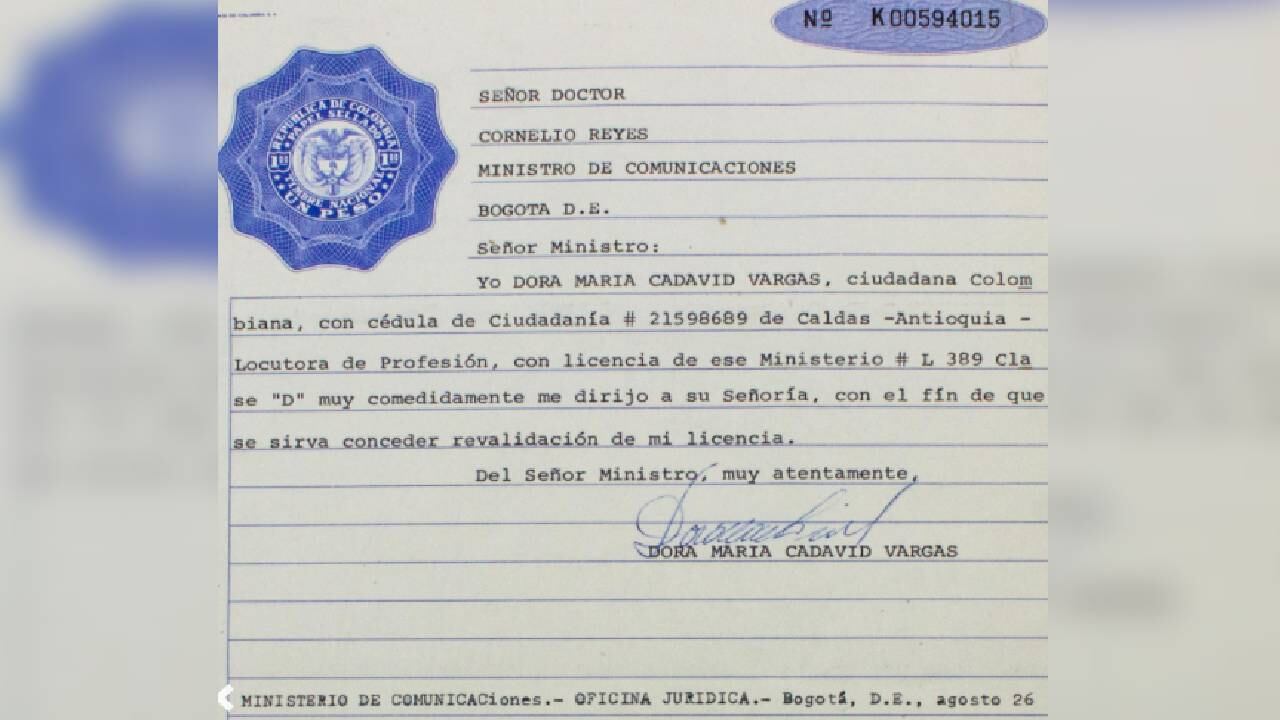 Nº K00594015
REPUBLICA DE COLOMBIA
PAPEL SELLADO
TIMBRE NACIONAL
UN PESO
SEÑOR DOCTOR
CORNELIO REYES
MINISTRO DE COMUNICACIONES
BOGOTA D.E.
Señor Ministro:
Yo DORA MARIA CADAVID VARGAS, ciudadana Colom
biana, con cédula de Ciudadanía # 21598689 de Caldas -Antioquia -
Locutora de Profesión, con licencia de ese Ministerio # L 389 Cla
se "D" muy comedidamente me dirijo a su Señoría, con el fín de que
se sirva conceder revalidación de mi licencia.
Del Señor Ministro, muy atentamente,
DORA MARIA CADAVID VARGAS
MINISTERIO DE COMUNICACiones.- OFICINA JURIDICA.- Bogotá, D.E., agosto 26